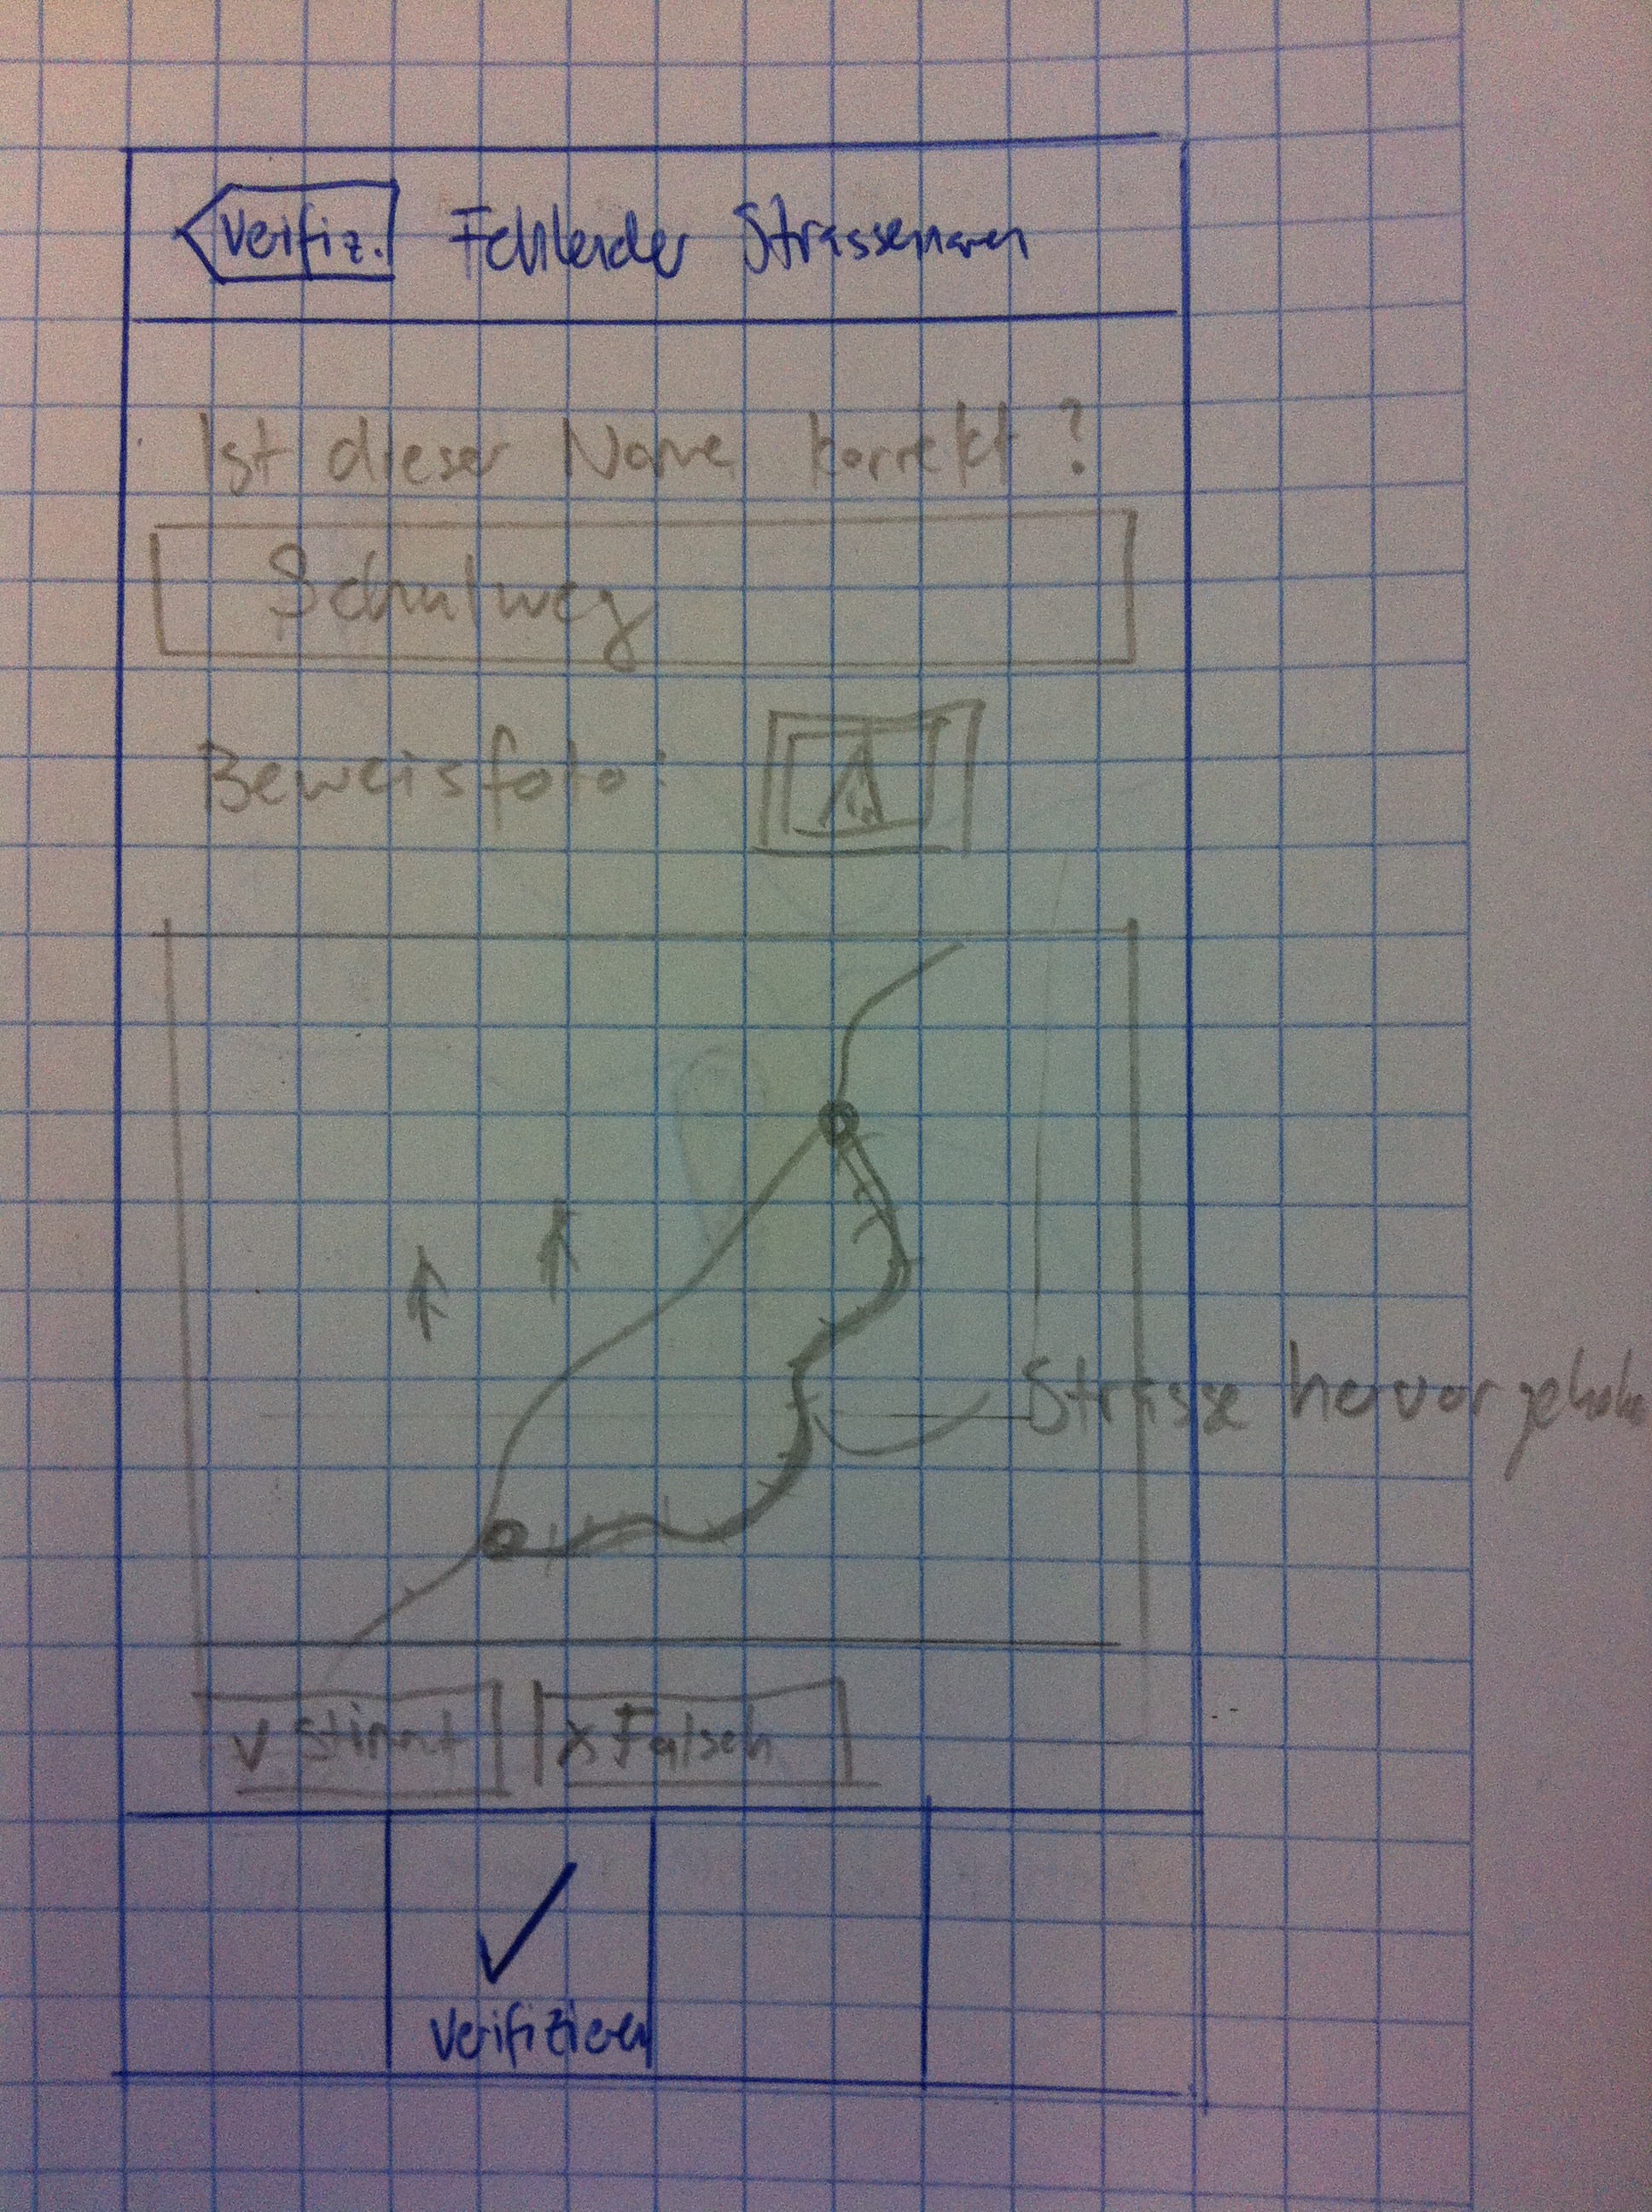 Verifiz. Fehlender Strassennamen
Ist dieser Name korrekt?
Schulweg
Beweisfoto:
Strasse hervorgehoben
✓ Stimmt x Falsch
Verifizieren